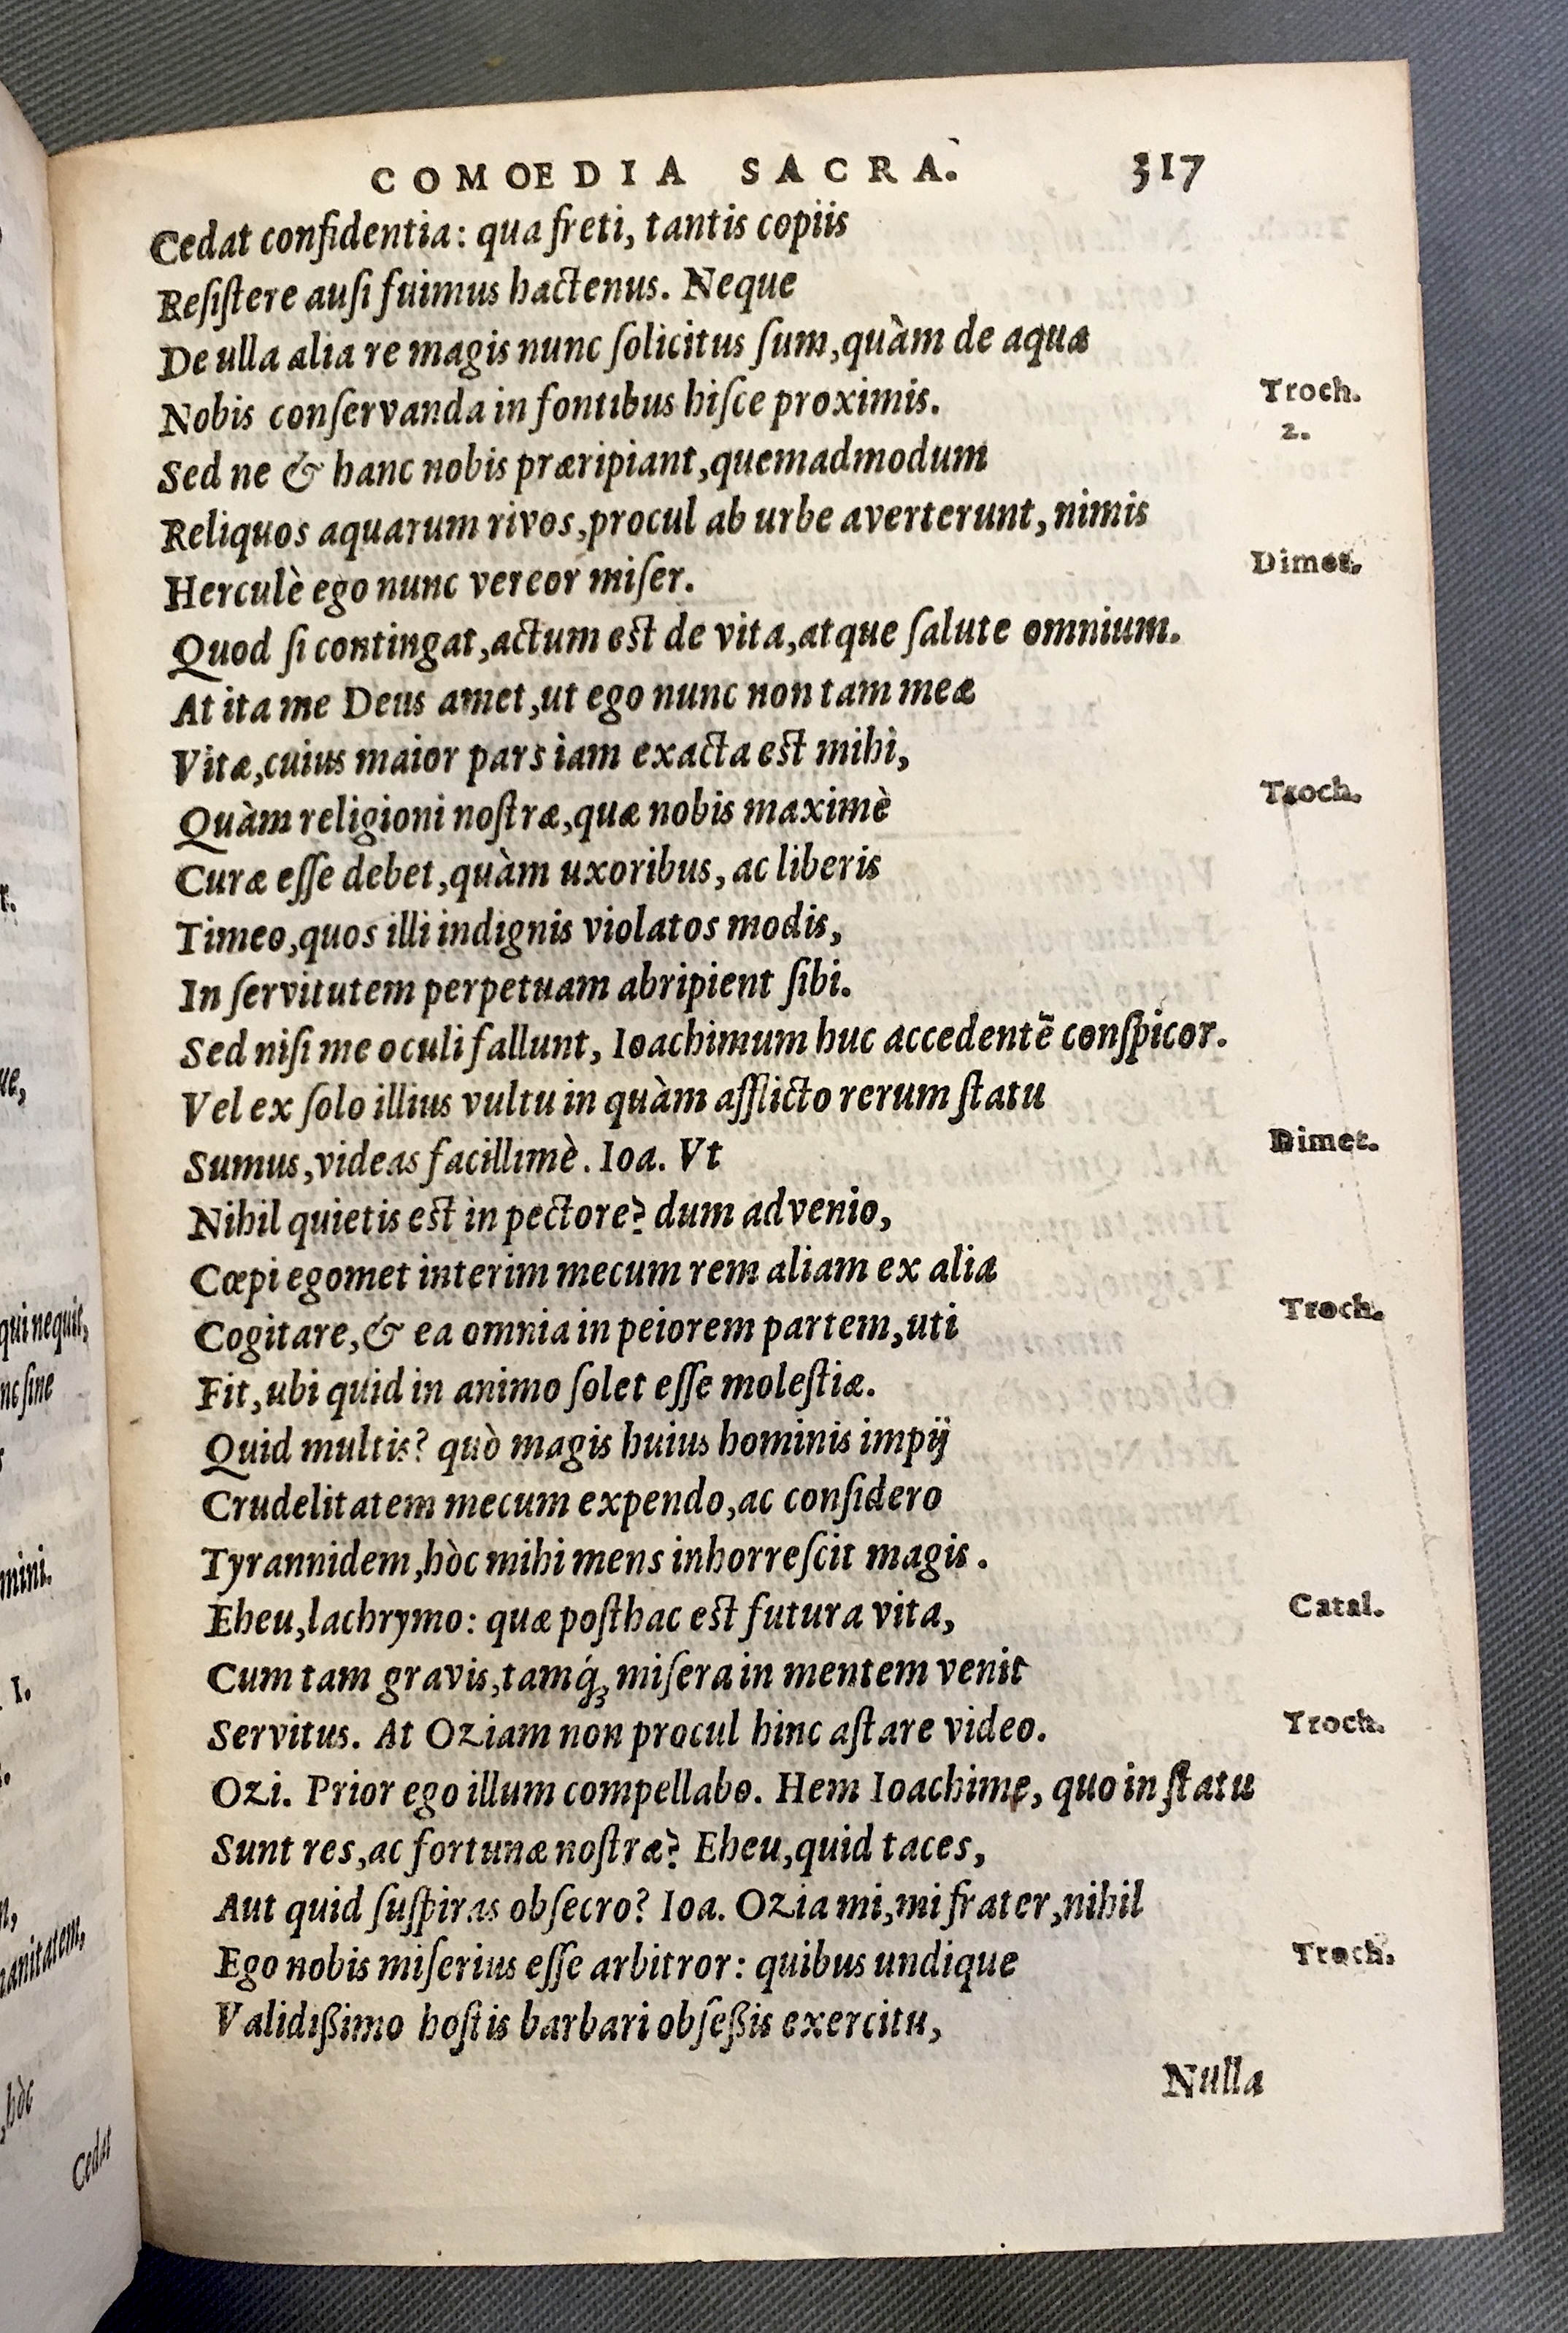 COMOEDIA SACRA. 317
Cedat confidentia: qua freti, tantis copiis
Resiſtere auſi fuimus hactenus. Neque
De ulla alia re magis nunc ſolicitus ſum, quàm de aqua
Nobis conſervanda in fontibus hiſce proximis. Troch.
2.
Sed ne & hanc nobis præripiant, quemadmodum
Reliquos aquarum rivos, procul ab urbe averterunt, nimis
Herculè ego nunc vereor miſer. Dimet.
Quod ſi contingat, actum est de vita, atque ſalute omnium.
At ita me Deus amet, ut ego nunc non tam meæ
Vitæ, cuius maior pars iam exacta est mihi,
Quàm religioni noſtræ, quæ nobis maximè Troch.
Curæ eſſe debet, quàm uxoribus, ac liberis
Timeo, quos illi indignis violatos modis,
In ſervitutem perpetuam abripient ſibi.
Sed niſi me oculi fallunt, Ioachimum huc accedentē conſpicor.
Vel ex ſolo illius vultu in quàm afflicto rerum ſtatu
Sumus, videas facillimè. Ioa. Vt Dimet.
Nihil quietis est in pectore? dum advenio,
Cœpi egomet interim mecum rem aliam ex alia
Cogitare, & ea omnia in peiorem partem, uti Troch.
Fit, ubi quid in animo ſolet eſſe moleſtiæ.
Quid multis? quò magis huius hominis impij
Crudelitatem mecum expendo, ac conſidero
Tyrannidem, hòc mihi mens inhorreſcit magis.
Eheu, lachrymo: quæ poſthac est futura vita, Catal.
Cum tam gravis, tamq́ꝫ miſera in mentem venit
Servitus. At Oziam non procul hinc aſtare video. Troch.
Ozi. Prior ego illum compellabo. Hem Ioachime, quo in ſtatu
Sunt res, ac fortunæ noſtræ? Eheu, quid taces,
Aut quid ſuſpiras obſecro? Ioa. Ozia mi, mi frater, nihil
Ego nobis miſerius eſſe arbitror: quibus undique Troch.
Validißimo hoſtis barbari obſeßis exercitu,
Nulla
qui nequit,
mini.
I.
hòc
Cedat